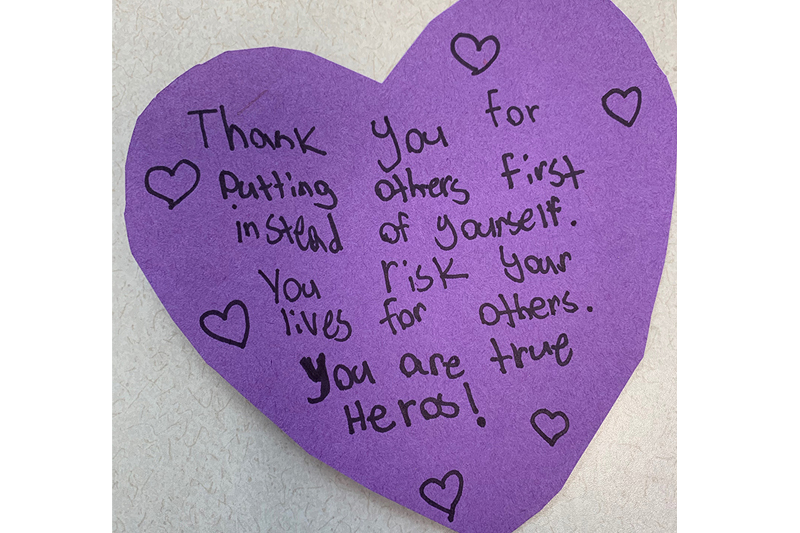 Thank you for
putting others first
instead of yourself.
You risk your
lives for others.
You are true
Heros!